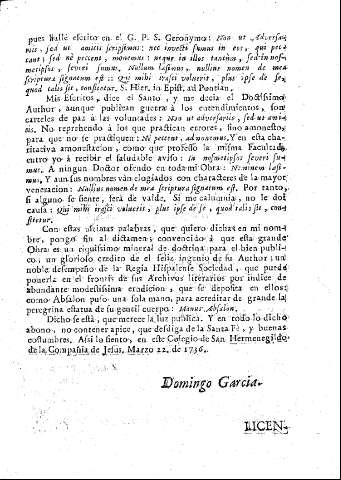 pues hallè escrito en el G. P. S. Geronymo: Non ut adversa-
rii, sed ut amici scripsimus: nec invecti sumus in eos, qui pec-
cant; sed nè peccent, monemus: neque in illos tantùm, sed in nos-
metipsos, severi sumus. Nullum læsimus, nullius nomen de mea
scriptura signatum est: Qui mihi irasci voluerit, plus ipse de se,
quod talis sit, confitetur. S. Hier. in Epist. ad Pontian.
Mis Escritos, dice el Santo, y me decia el Doctissimo
Author, aunque publican guerra à los entendimientos, son
carteles de paz à las voluntades: Non ut adversarii, sed ut ami-
ci. No reprehendo à los que practican errores, sino amonesto,
para que no se practiquen: Nè peccent, admonemus. Y en esta cha-
ritativa amonestacion, como que professo la misma Facultad,
entro yo à recibir el saludable aviso: In nosmetipsos severi su-
mus. A ningun Doctor ofendo en toda mi Obra: Neminem læsi-
mus, Y aun sus nombres vàn elogiados con characteres de la mayor
veneracion: Nullius nomen de mea scriptura signatum est. Por tanto,
si alguno se siente, serà de valde. Si me calumnia, no le doi
causa: Qui mihi irasci voluerit, plus ipse de se, quod talis sit, con-
fitetur.
Con estas ultimas palabras, que quiero dichas en mi nom-
bre, pongo fin al dictamen; convencido à que esta grande
Obra es un riquissimo mineral de doctrina para el bien publi-
co, un glorioso credito de el feliz ingenio de su Author; un
noble desempeño de la Regia Hispalense Sociedad, que puede
ponerla en el frontis de sus Archivos literarios por indice de la
abundante modestissima erudicion, que se deposita en ellos:
como Absalon puso una sola mano, para acreditar de grande la
peregrina estatua de su gentil cuerpo: Manus Absalon.
Dicho se està, que merece la luz publica. Y en todo lo dicho
abono, no contener apice, que desdiga de la Santa Fè, y buenas
costumbres. Assi lo siento, en este Colegio de San Hermenegildo
de la Compañia de Jesus, Marzo 22. de 1736.
Domingo Garcia.
LICEN-